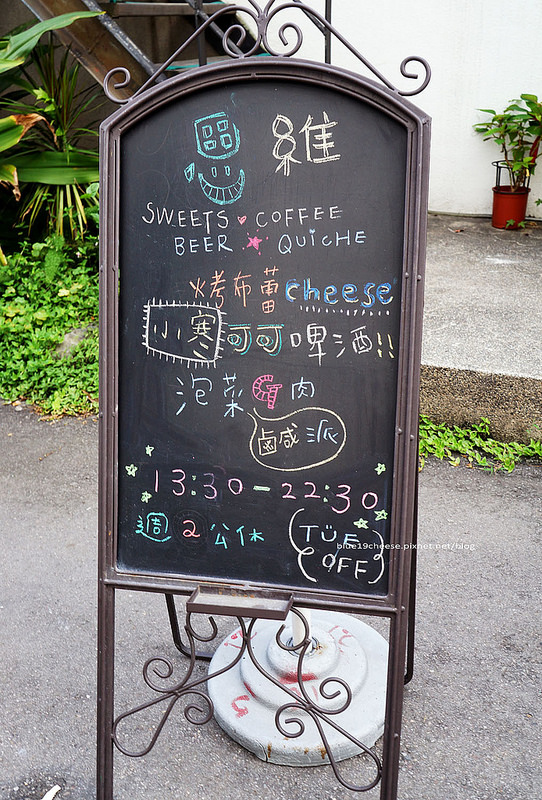 思維
SWEETS COFFEE
BEER QUiCHE
烤布蕾 cheese
小寒 可可 啤酒!!
泡菜牛肉
鹹派
13:30-22:30
週2公休
TUE
OFF
blue19cheese.pixnet.net/blog